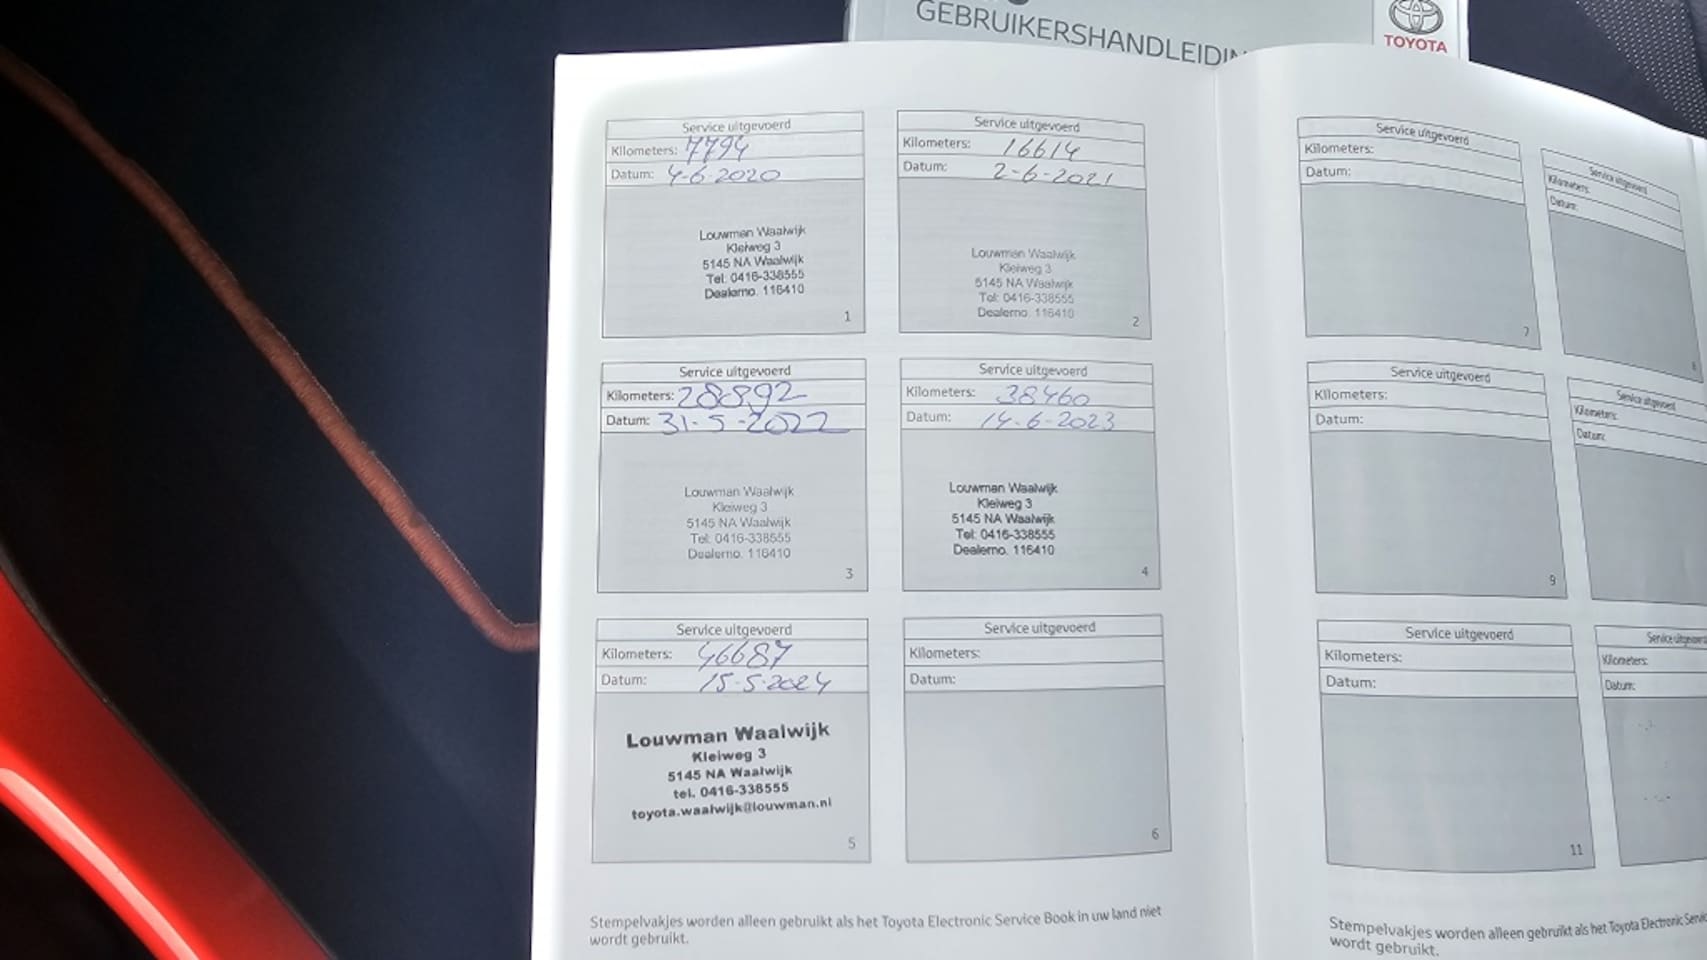 GEBRUIKERSHANDLEIDIN
TOYOTA
Service uitgevoerd
Kilometers: 7794
Datum: 4-6-2020
Louwman Waalwijk
Kleiweg 3
5145 NA Waalwijk
Tel: 0416-338555
Dealerno. 116410
1
Service uitgevoerd
Kilometers: 16614
Datum: 2-6-2021
Louwman Waalwijk
Kleiweg 3
5145 NA Waalwijk
Tel: 0416-338555
Dealerno. 116410
2
Service uitgevoerd
Kilometers: 28892
Datum: 31-5-2022
Louwman Waalwijk
Kleiweg 3
5145 NA Waalwijk
Tel: 0416-338555
Dealerno. 116410
3
Service uitgevoerd
Kilometers: 38460
Datum: 14-6-2023
Louwman Waalwijk
Kleiweg 3
5145 NA Waalwijk
Tel: 0416-338555
Dealerno. 116410
4
Service uitgevoerd
Kilometers: 46687
Datum: 15-5-2024
Louwman Waalwijk
Kleiweg 3
5145 NA Waalwijk
tel. 0416-338555
toyota.waalwijk@louwman.nl
5
Service uitgevoerd
Kilometers:
Datum:
6
Stempelvakjes worden alleen gebruikt als het Toyota Electronic Service Book in uw land niet
wordt gebruikt.
Service uitgevoerd
Kilometers:
Datum:
7
Service uitgevoerd
Kilometers:
Datum:
8
Service uitgevoerd
Kilometers:
Datum:
9
Service uitgevoerd
Kilometers:
Datum:
Service uitgevoerd
Kilometers:
Datum:
11
Service uitgevoerd
Kilometers:
Datum:
Stempelvakjes worden alleen gebruikt als het Toyota Electronic Servic
wordt gebruikt.